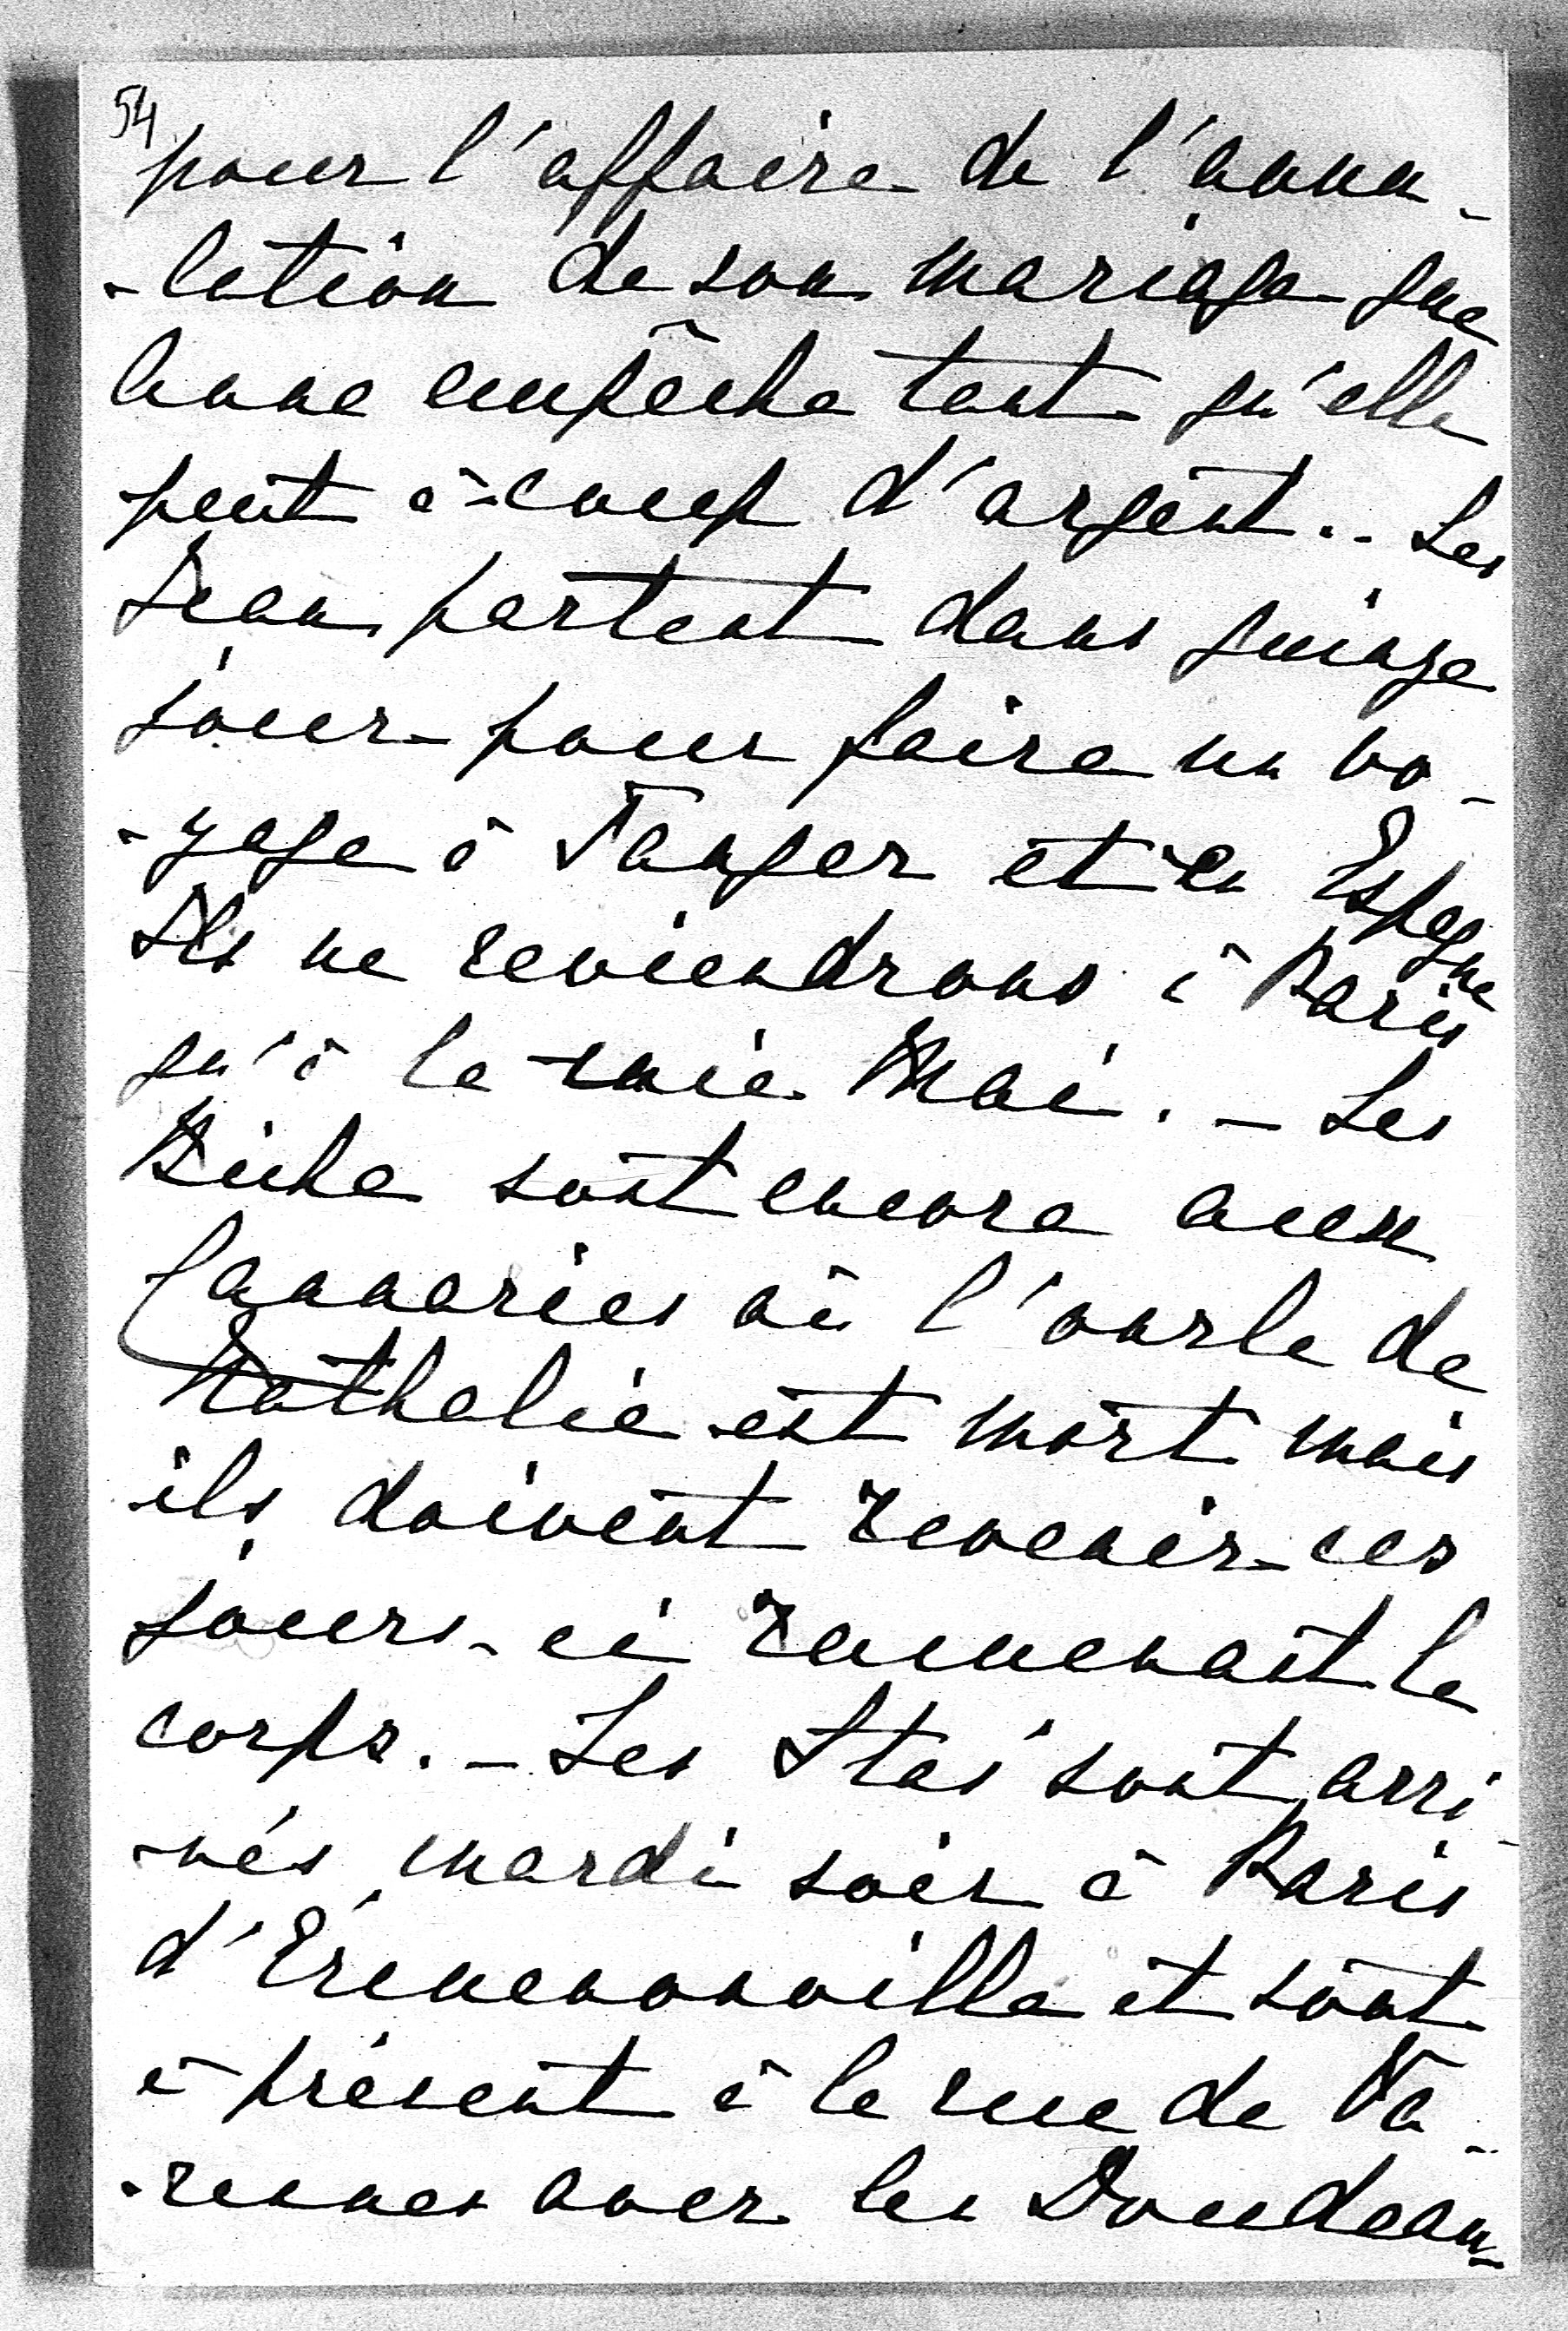 54
pour l'affaire de l'annu-
-lation de son mariage que
Anne empêche tant qu'elle
peut à coup d'argent.. Les
Jean partent dans quinze
jour pour faire un vo-
-yage à Tanger et en Espagne
Ils ne reviendrons à Paris
qu'à la mie Mai. - Les
Biche sont encore aux
Cannaries où l'oncle de
Nathalie est mort mais
ils doivent revenir ces
jours-ci ramenant le
corps. - Les Stas' sont arri-
-vés mardi soir à Paris
d'Ermenonville et sont
à présent à la rue de Va-
-rennes avec les Doudeau-